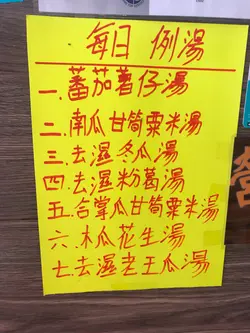 每日 例湯
一.蕃茄薯仔湯
二.南瓜甘筍粟米湯
三.去濕冬瓜湯
四.去濕粉葛湯
五.合掌瓜甘筍粟米湯
六.木瓜花生湯
七.去濕老王瓜湯